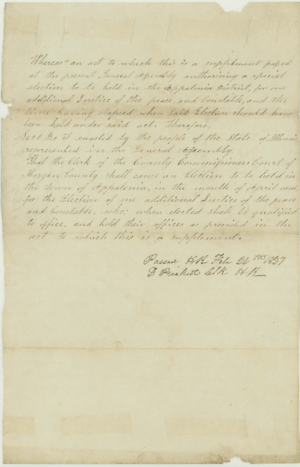 Whereas an act to which this is a supplement passed
at the present General Assembly authorising a special
election to be held in the Appalonia District, for one
additional Justice of the peace and Constable, and the
time having elapsed when said Election should have
been held under said act. Therefore,
Sec 1 Be it enacted by the people of the State of Illinois
represented in the General Assembly.
That the Clerk of the County Commissioners Court of
Morgan County shall cause an Election to be held in
the town of Appalonia, in the month of April next
for the Election of one additional Justice of the peace
and constable, who, when elected shall be qualified
to office, and hold their offices as provided in the
act to which this is a supplement.
Passed H.R. Feb 1837
D Prickett Clk H.R.